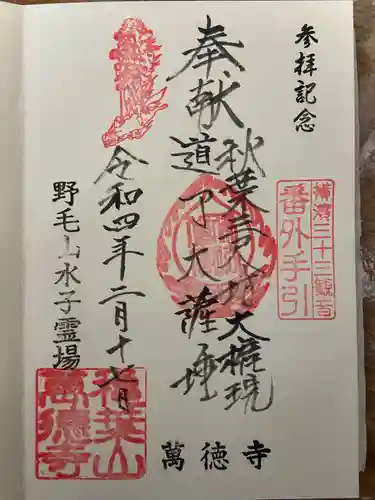 参拝記念
横濱三十三観音
番外手引
奉献
秋葉三尺坊大権現
道了大薩埵
令和四年二月十七日
野毛山水子霊場
萬徳寺
秋葉山
萬徳寺